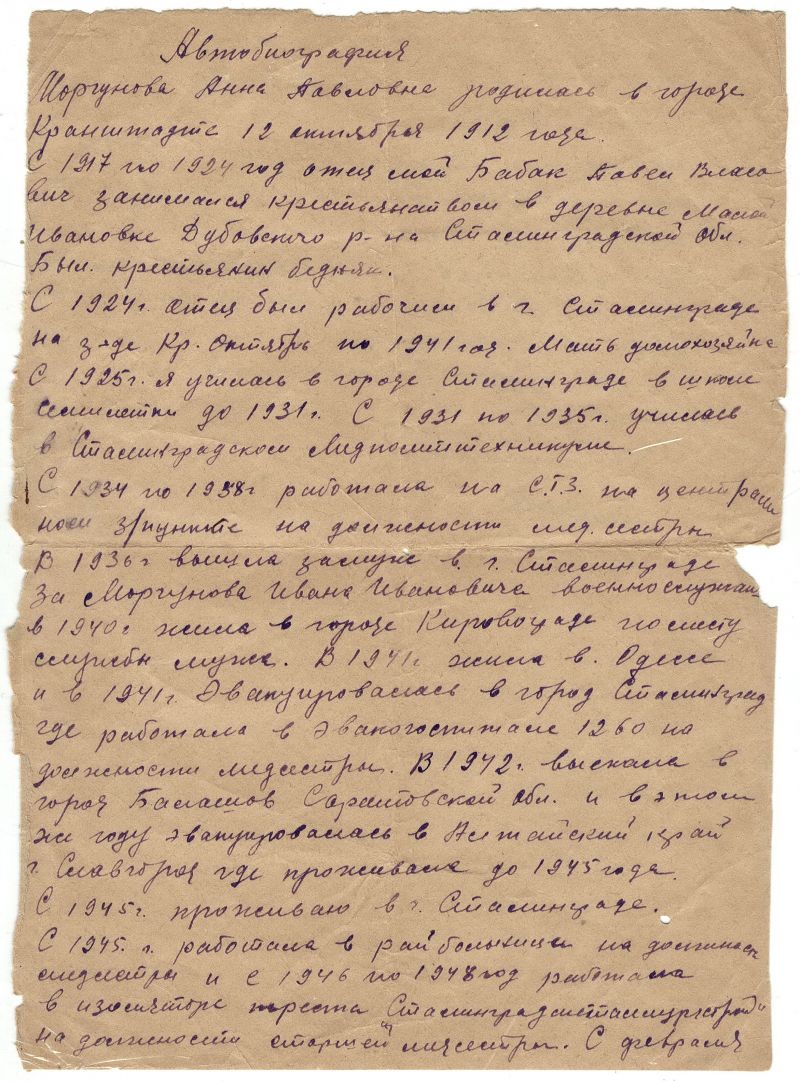 Автобиография
Моргунова Анна Павловна родилась в городе
Кранштадте 12 октября 1912 года.
С 1917 по 1924 год отец мой Бабак Павел Власо
вич занимался крестьянством в деревне Малой
Ивановке Дубовского р-на Сталинградской обл.
Был крестьянин бедняк.
С 1924 г. отец был рабочим в г. Сталинграде
на з-де Кр. Октябрь по 1941 год. Мать домохозяйка
С 1925 г. я училась в городе Сталинграде в школе
семилетки до 1931 г. С 1931 по 1935 г. училась
в Сталинградском Медполиттехникуме.
С 1934 по 1938 г работала на С.Т.З. на централь
ном з/пункте на должности мед. сестры
В 1936 г вышла замуж в г. Сталинграде
за Моргунова Ивана Ивановича военнослужащ
в 1940 г жила в городе Кировограде по месту
службы мужа. В 1941 г. жила в. Одессе
и в 1941 г. эвакуировалась в город Сталинград
где работала в эвакогоспитале 1260 на
должности медсестры. В 1942 г. выехала в
город Балашов Саратовской обл. и в этом
же году эвакуировалась в Алтайский край
г. Славгород где проживала до 1945 года.
С 1945 г. проживаю в г. Сталинграде.
С 1945. г. работала в райбольнице на должность
медсестры и с 1946 по 1948 год работала
в изоляторе треста "Сталинградсталмунстрой"
на должности старшей медсестры. С февраля